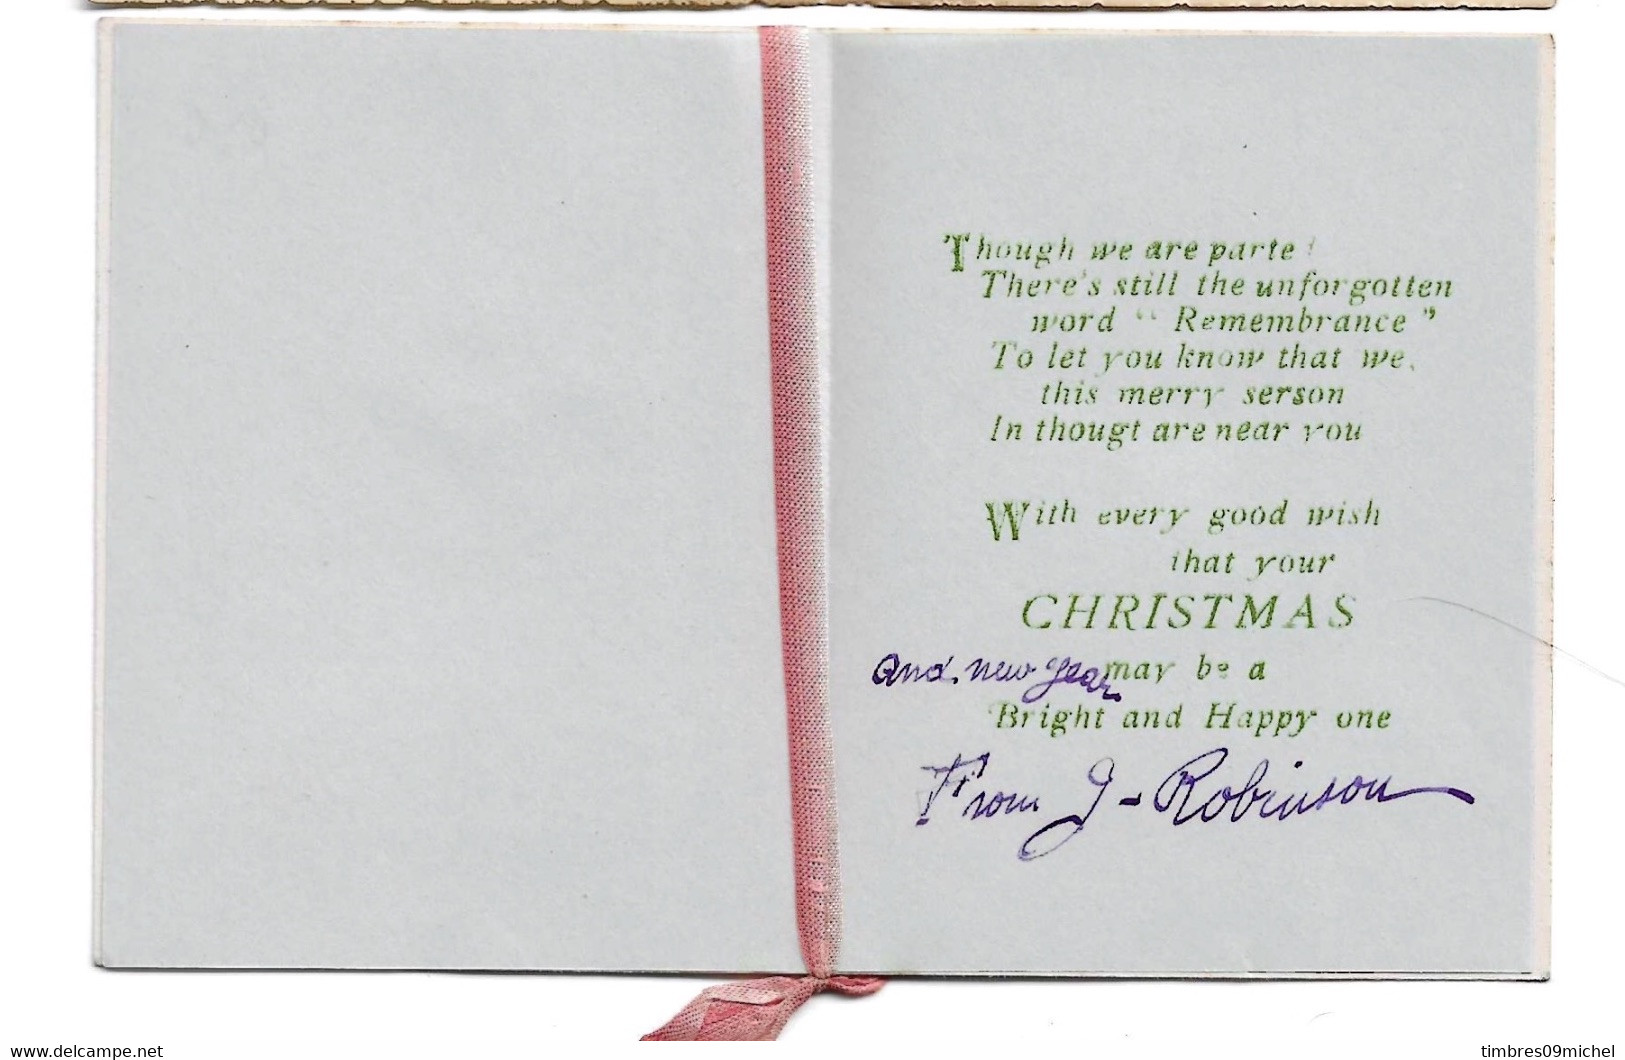 Though we are parte
There's still the unforgotten
word " Remembrance "
To let you know that we,
this merry serson
In thougt are near you
With every good wish
that your
CHRISTMAS
and new year may be a
Bright and Happy one
From J - Robinson
www.delcampe.net
timbres09michel